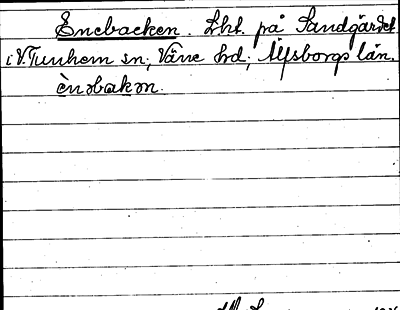 Enebacken. Lht. på Sandgärdet
i V. Tunhem sn; Väne hd; Älfsborgs län.
ènəbakən.